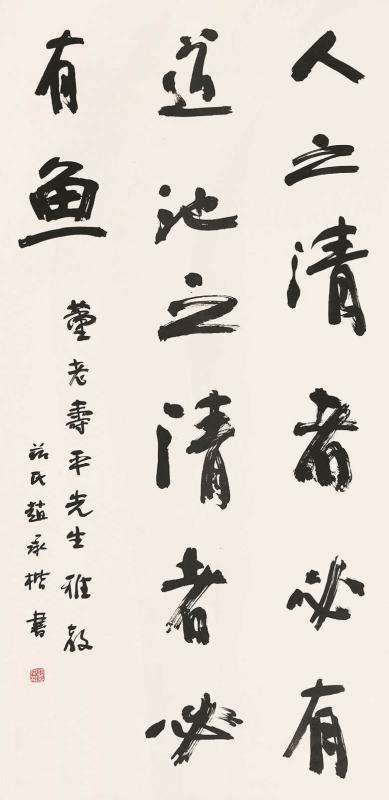 人之清者必有
道池之清者必
有鱼
董老寿平先生雅教
兹氏赵承楷书